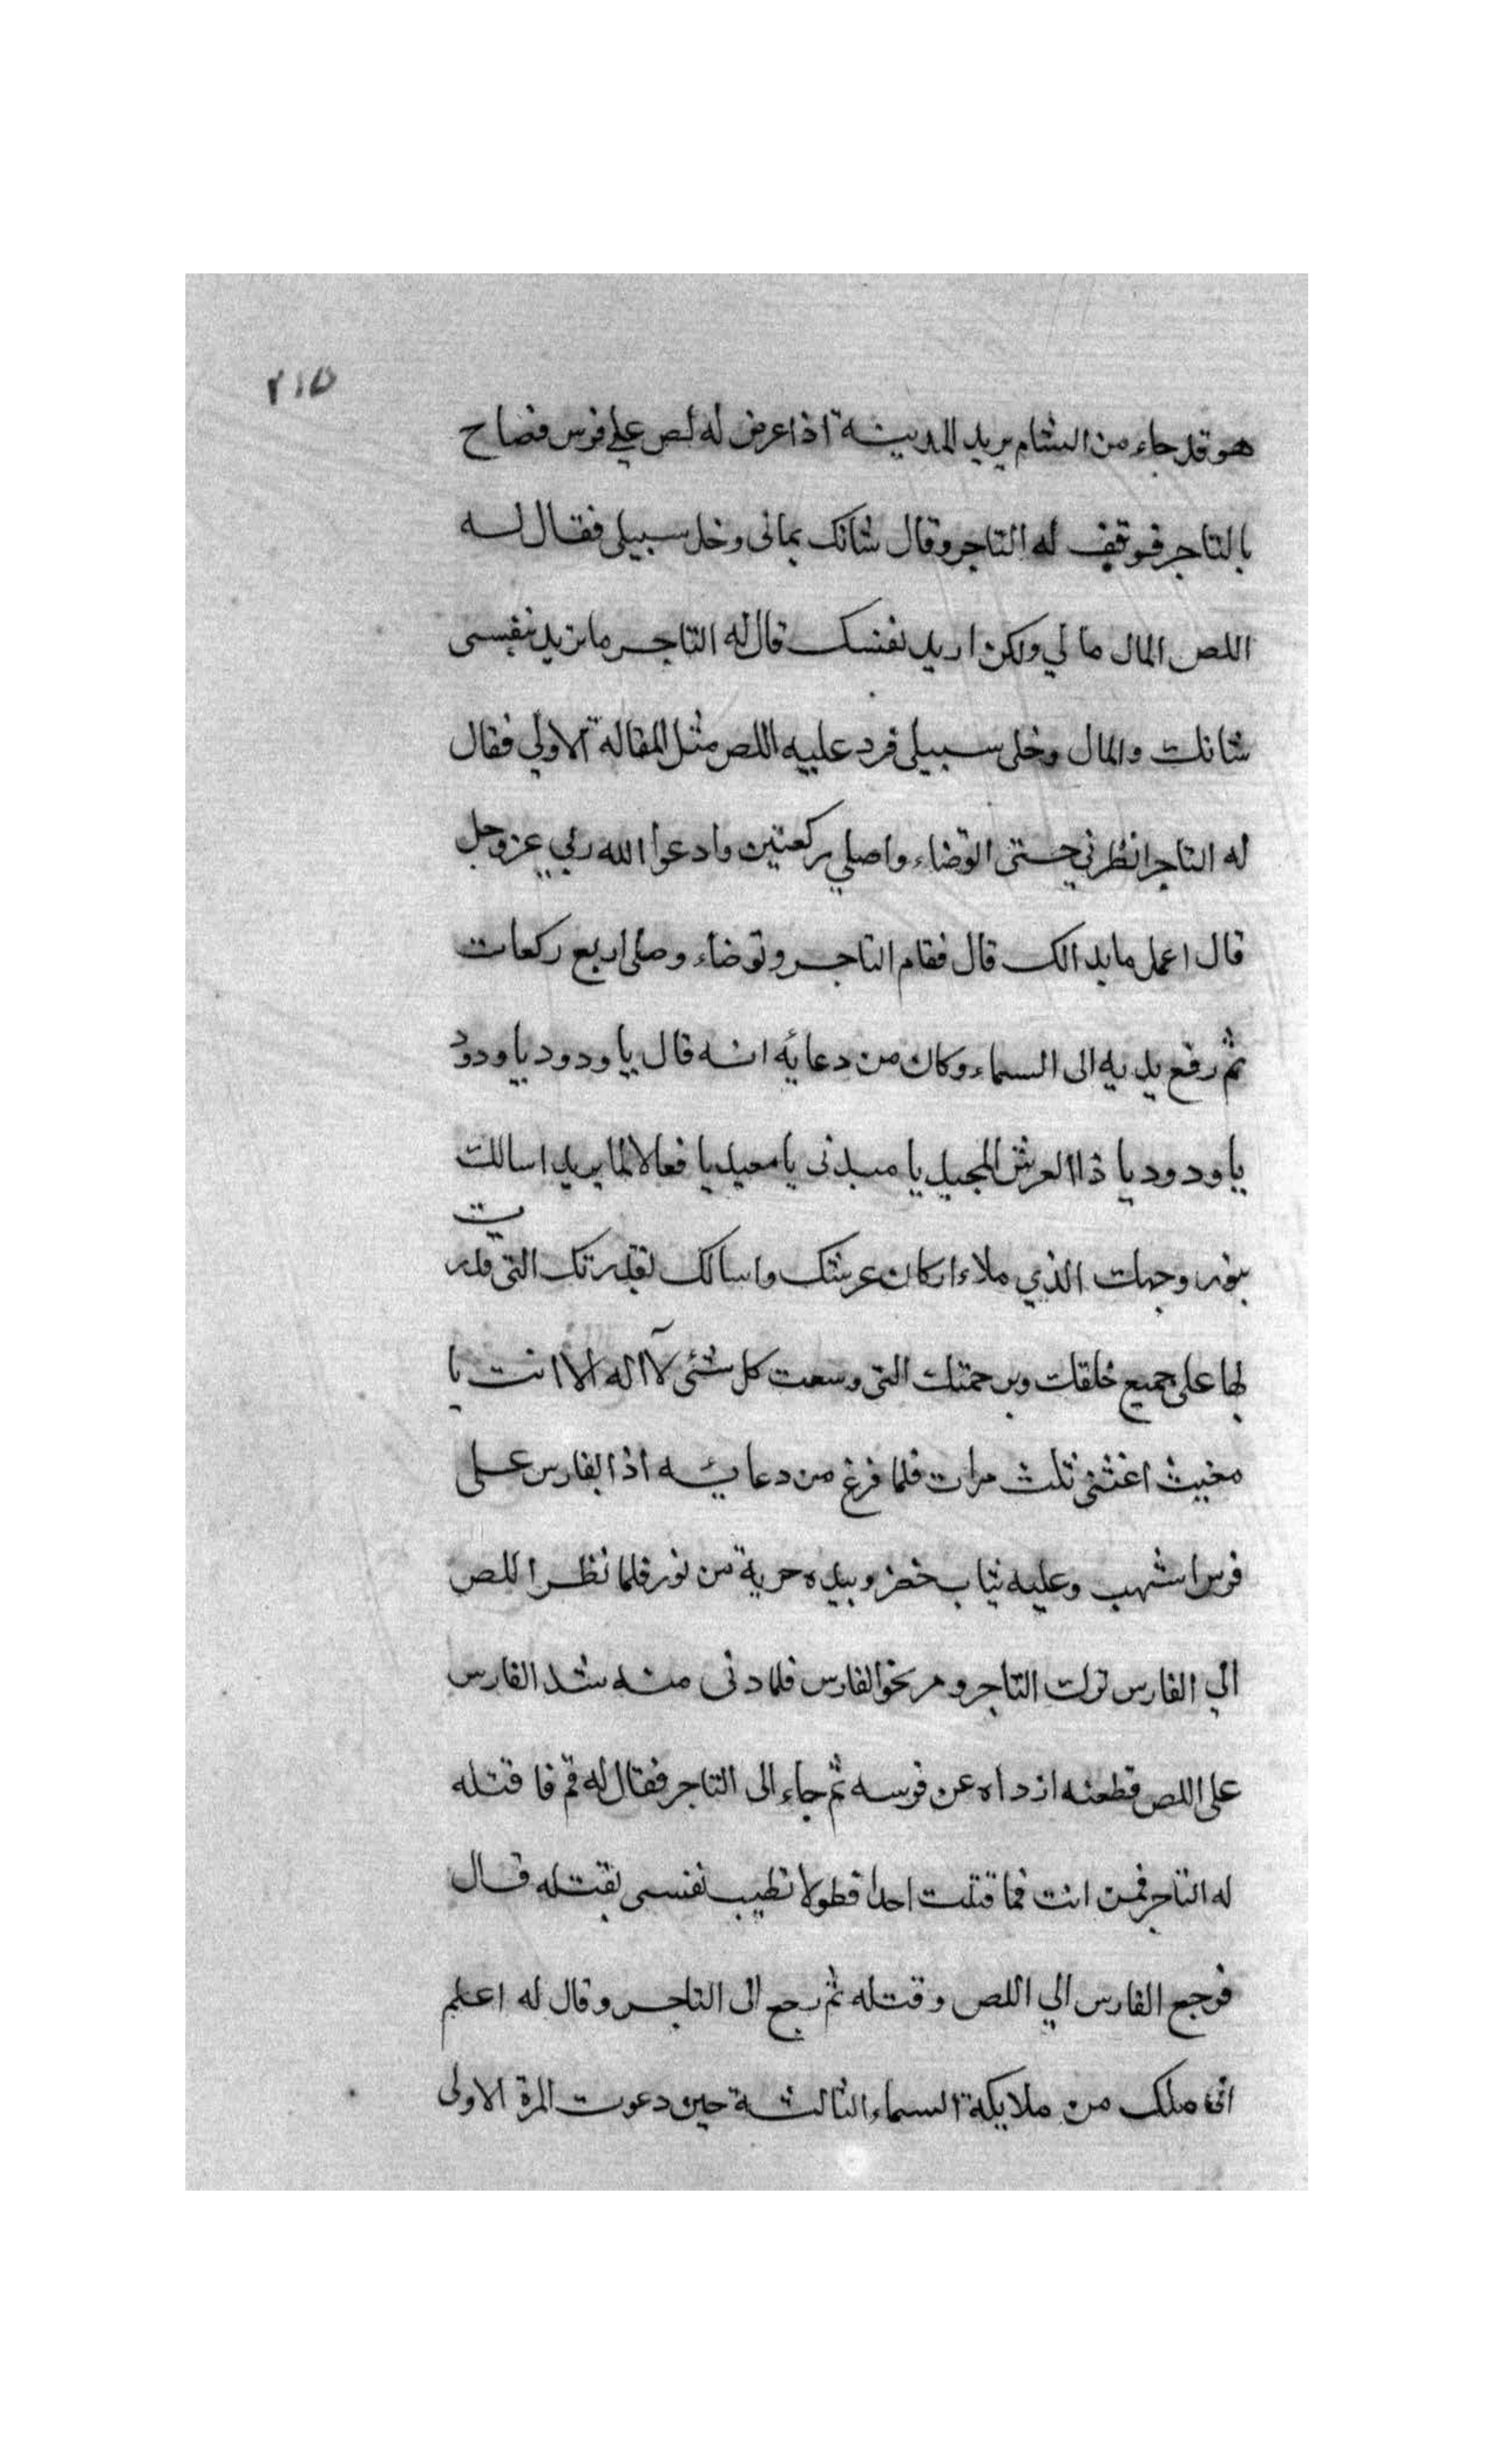 ٢١٥
هو قد جاء من الشام يريد المدينة اذا عرض له لص علي فرس فصاح
بالتاجر فوقف له التاجر وقال شانك بمالى وخل سبيلى فقال له
اللص المال مالي ولكن اريد نفسك قال له التاجر ما تريد بنفسى
شانك والمال وخلى سبيلى فرد عليه اللص مثل المقالة الاولي فقال
له التاجر انظرني حتى اتوضاء واصلي ركعتين وادعوا الله ربي عز وجل
قال اعمل ما بدالك قال فقام التاجر وتوضاء وصلى اربع ركعات
ثم رفع يديه الى السماء وكان من دعائه انه قال يا ودود يا ودود
يا ودود يا ذا العرش المجيد يا مبدئ يا معيد يا فعالا لما يريد اسالك
بنور وجهك الذي ملاء اركان عرشك واسالك بقدرتك التى قدرت
بها على جميع خلقك وبرحمتك التى وسعت كل شئى لا اله الا انت يا
مغيث اغثنى ثلث مرات فلما فرغ من دعائه اذا بفارس على
فرس اشهب وعليه ثياب خضر وبيده حربة من نور فلما نظر اللص
الي الفارس ترك التاجر ومر نحو الفارس فلما دنى منه شد الفارس
على اللص فطعنه ازداه عن فرسه ثم جاء الى التاجر فقال له قم فاقتله
له التاجر فمن انت فما قتلت احدا قط ولا تطيب نفسى بقتله قال
فرجع الفارس الي اللص وقتله ثم رجع الى التاجر وقال له اعلم
انى ملك من ملايكة السماء الثالثة حين دعوت المرة الاولى